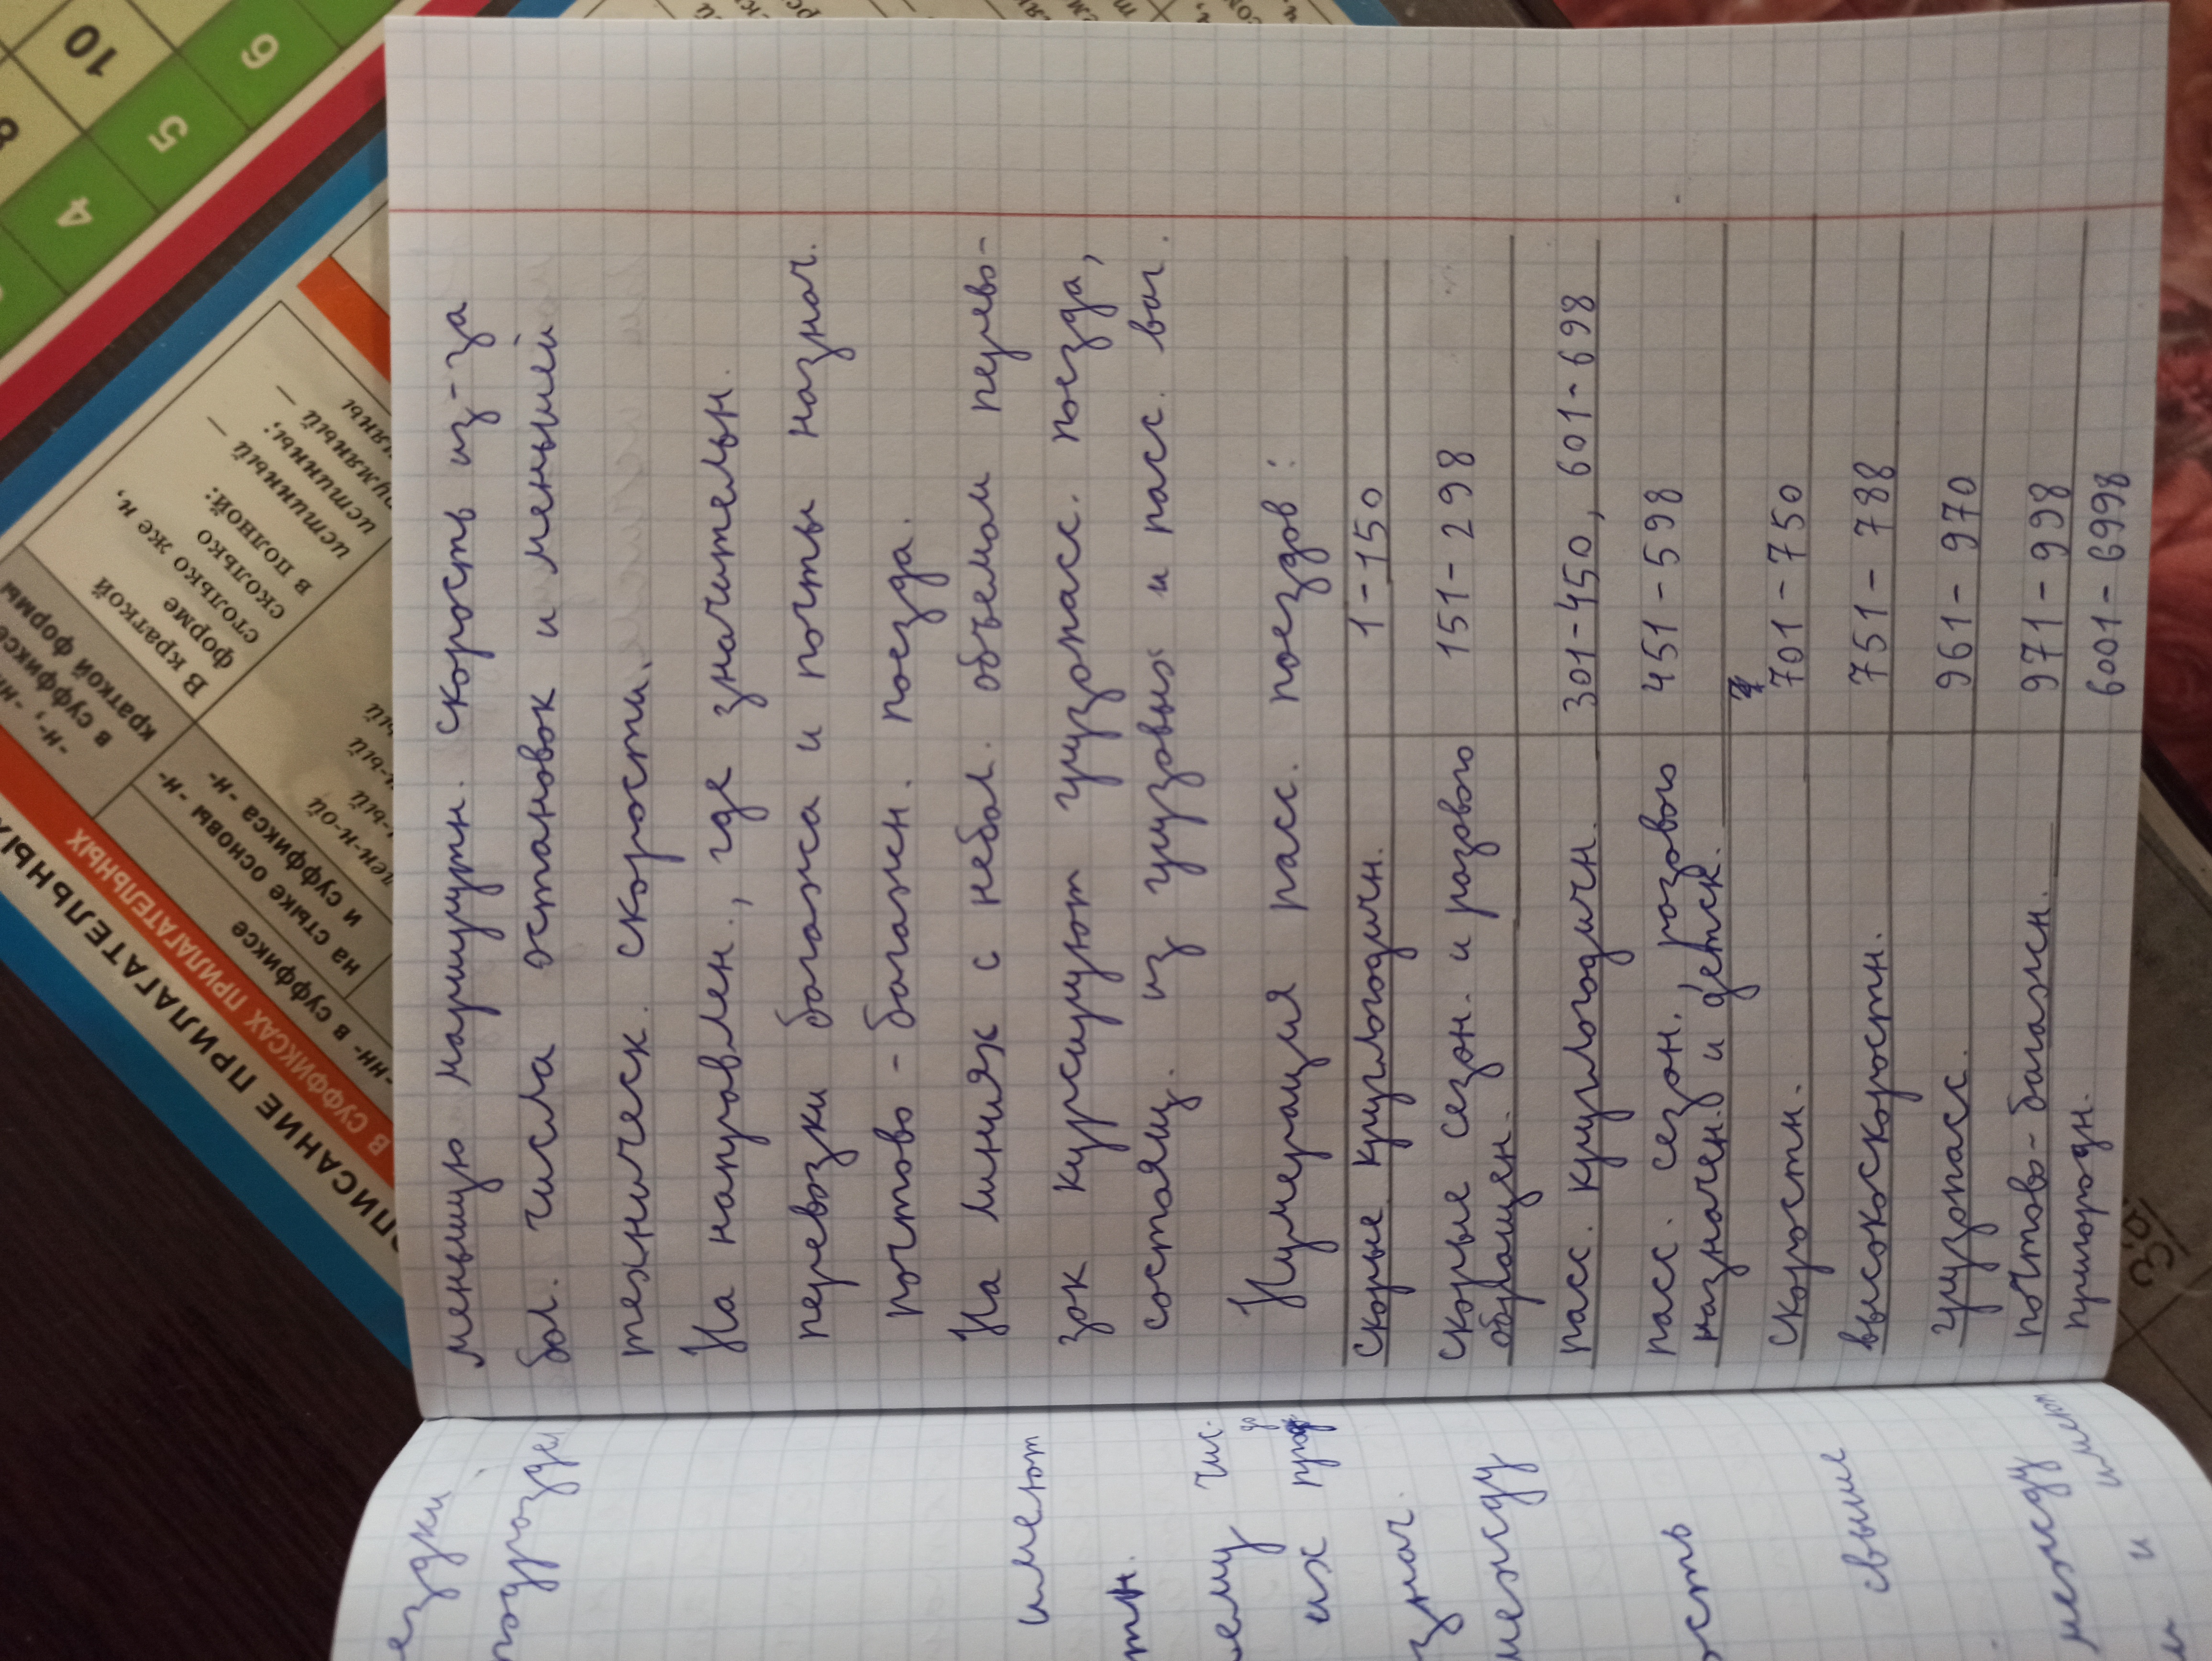 меньшую маршрутн. скорость из-за
бол. числа остановок и меньшей
техническ. скорости.
На направлен., где значительн.
перевозки багажа и почты назнач.
почтово-багажн. поезда.
На линиях с небол. объемом перево-
зок курсируют грузопасс. поезда,
состоящ. из грузовых и пасс. ваг.
Нумерация пасс. поездов:
скорые круглогодичн. 1-150
скорые сезон. и разового 151-298
обращен.
пасс. круглогодичн. 301-450, 601-698
пасс. сезон, разового 451-598
назначен. и детск.
скоростн. 701-750
высокоскоростн. 751-788
грузопасс. 961-970
почтово-багажн. 971-998
пригородн. 6001-6998
ездки
подразде
имеют
тн.
ему чис.
их
знач.
между
ость
свыше
между
и имеют
ПИСАНИЕ ПРИЛАГАТЕЛЬНЫХ
В СУФФИКСАХ ПРИЛАГАТЕЛЬНЫХ
-нн- в суффиксе
на стыке основы -н-
и суффикса -н-
-н-, -нн-
в суффиксе
краткой формы
В краткой
форме
столько же н,
сколько
в полной:
истинный –
истинны;
румяный –
румяны
4
5
6
8
10